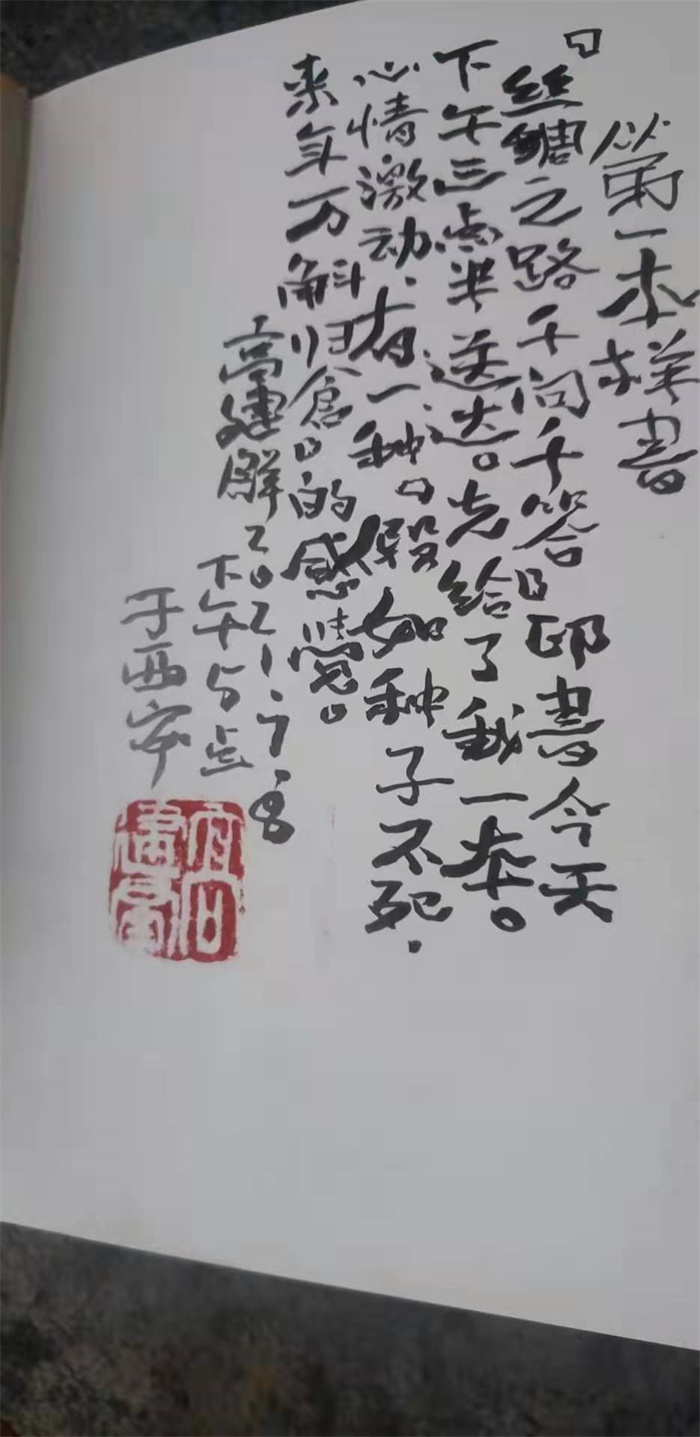 第一本样書
「丝绸之路千问千答」書今天
下午三点半送达。先给了我一本。
心情激动，有一种「假如种子不死，
来年万斛归仓」的感覺。
高建群2021.7.8
下午5点
于西安